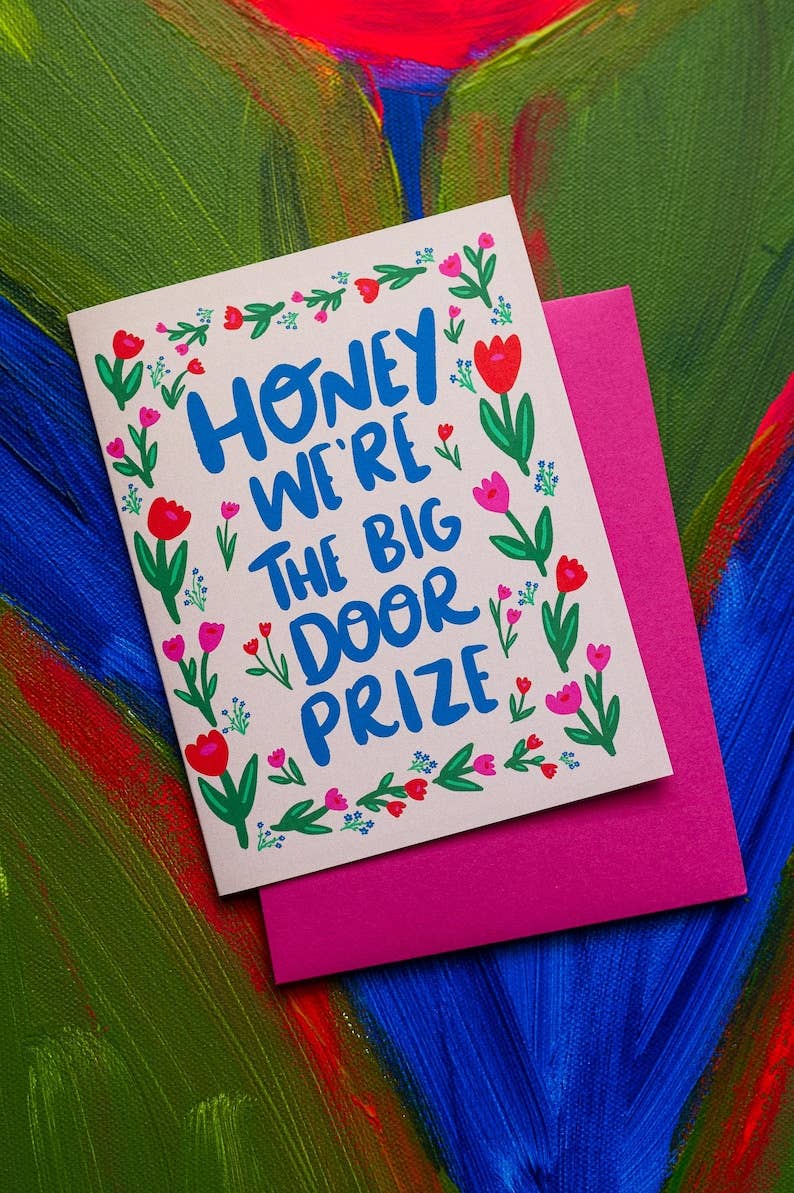 HONEY
WE'RE
THE BIG
DOOR
PRIZE